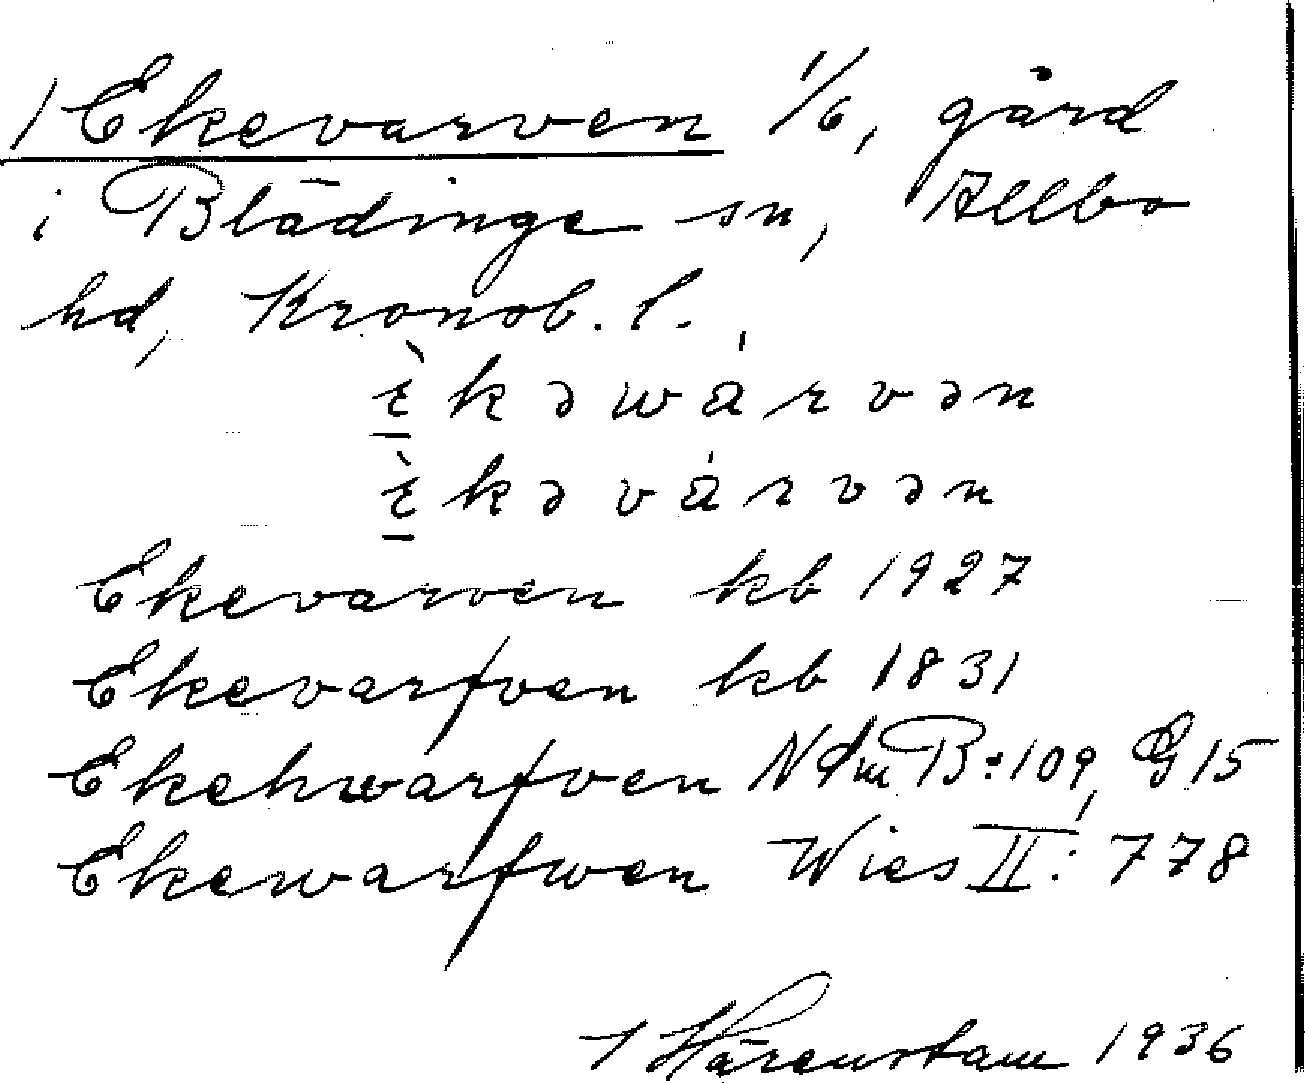 1 Ekevarven 1/6, gård
i Blädinge sn, Allbo
hd, Kronob. l.
ɛ̀kəwárvən
ɛ̀kəvárvən
Ekevarven kb 1927
Ekevarfven kb 1831
Ekehwarfven NdmB:109, G15
Ekewarfwen Wies II: 778
Härenstam 1936